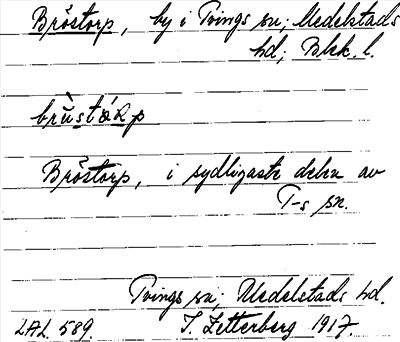 Bröstorp, by i Tvings sn; Medelstads
hd; Blek. l.
brùstárp
Bröstorp, i sydligaste delen av
T-s sn.
Tvings sn; Medelstads hd.
LAL 589. I. Zetterberg 1917.